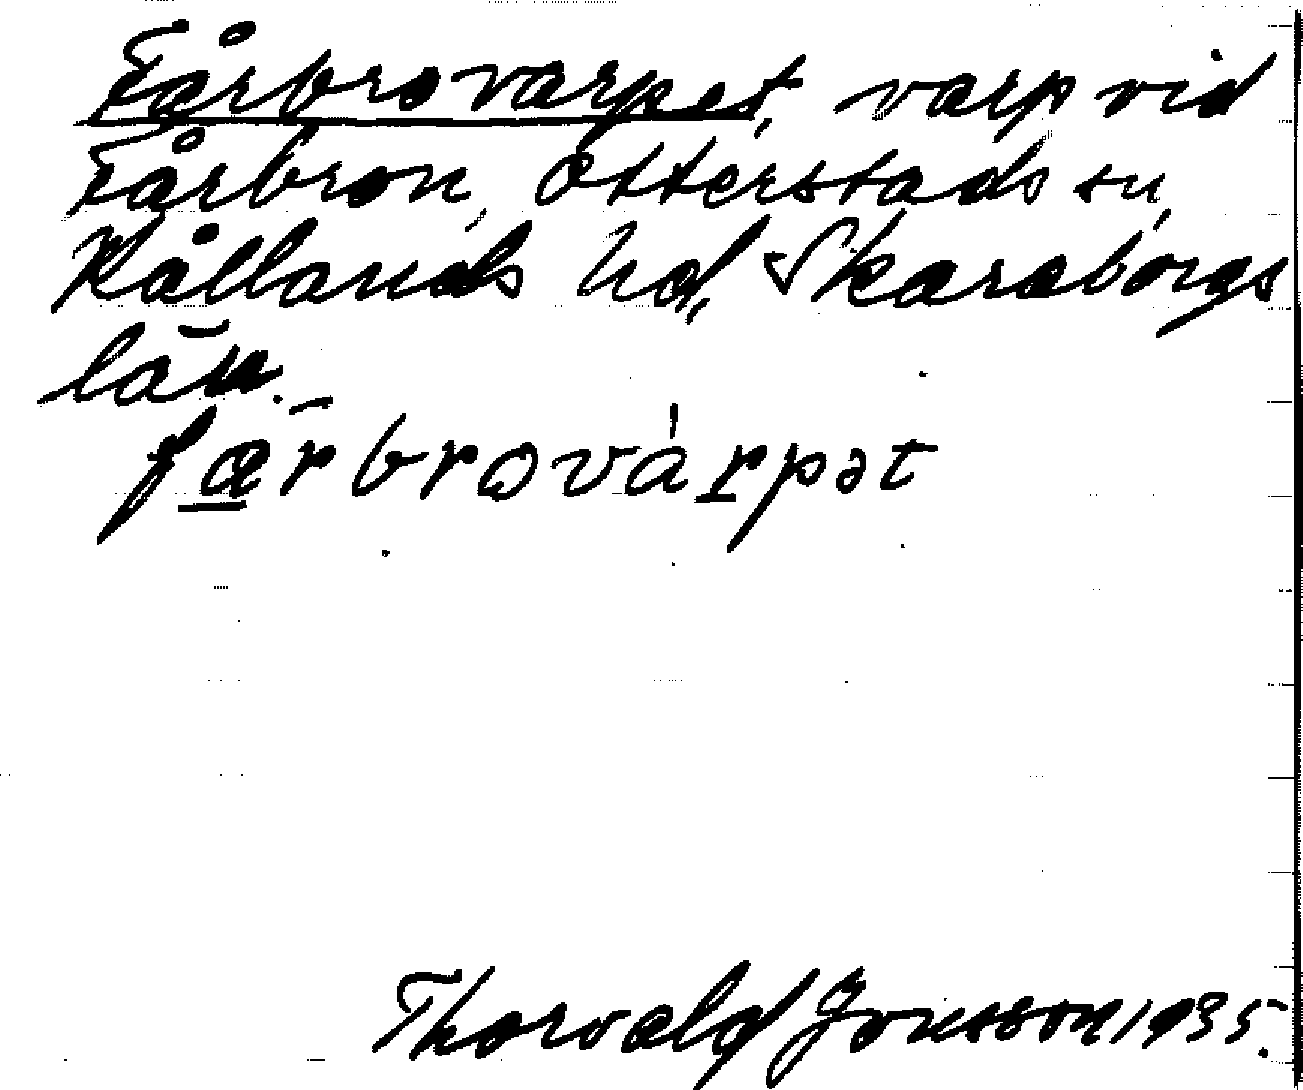 Fårbrovarpet, varp vid
Fårbron, Otterstads sn,
Kållands hd, Skaraborgs
län.
fæ̲r̄brovàr̲pət
Thorvald Jonsson 1935.